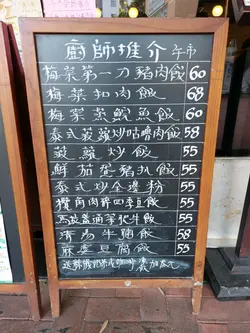 廚師推介 午市
梅菜第一刀豬肉飯 60
梅菜扣肉飯 68
梅菜蒸鯇魚飯 60
泰式菠蘿炒咕嚕肉飯 58
菠蘿炒飯 55
鮮茄蛋豬扒飯 55
泰式炒金邊粉 55
欖角肉碎四季豆飯 55
馬拉盞通菜牛飯 55
清湯牛腩飯 58
麻婆豆腐飯 55